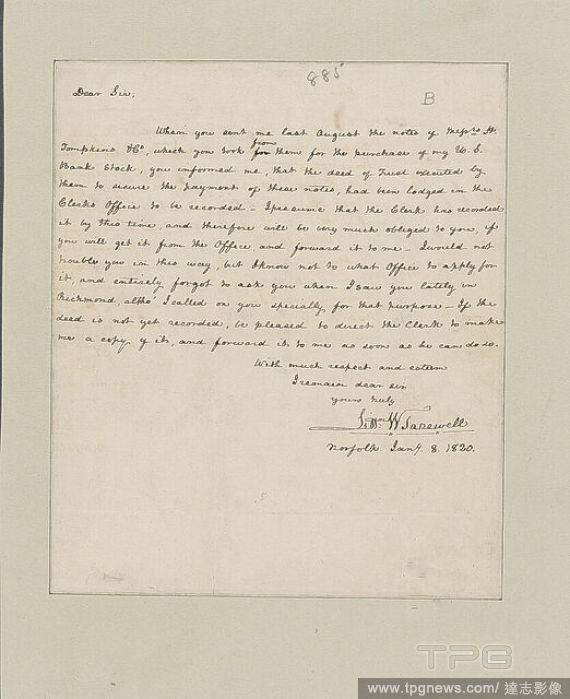 885
B
Dear Sir,
When you sent me last August the notes of Messrs H.
from
Tompkins & Co, which you took for them for the purchase of my U.S.
Bank Stock, you informed me, that the deed of Trust executed by
them to secure the payment of these notes, had been lodged in the
Clerks Office to be recorded - I presume that the Clerk has recorded
it by this time, and therefore will be very much obliged to you, if
you will get it from the Office, and forward it to me - I would not
trouble you in this way, but I know not to what Office to apply for
it, and entirely forgot to ask you when I saw you lately in
Richmond, altho' I called on you specially for that purpose - If the
deed is not yet recorded, be pleased to direct the Clerk to make
me a copy of it, and forward it to me as soon as he can do so.
With much respect and esteem
I remain dear sir
yours truly
Littn W Tazewell
Norfolk Jany. 8. 1820.
TPG
www.tpgnews.com / 達志影像